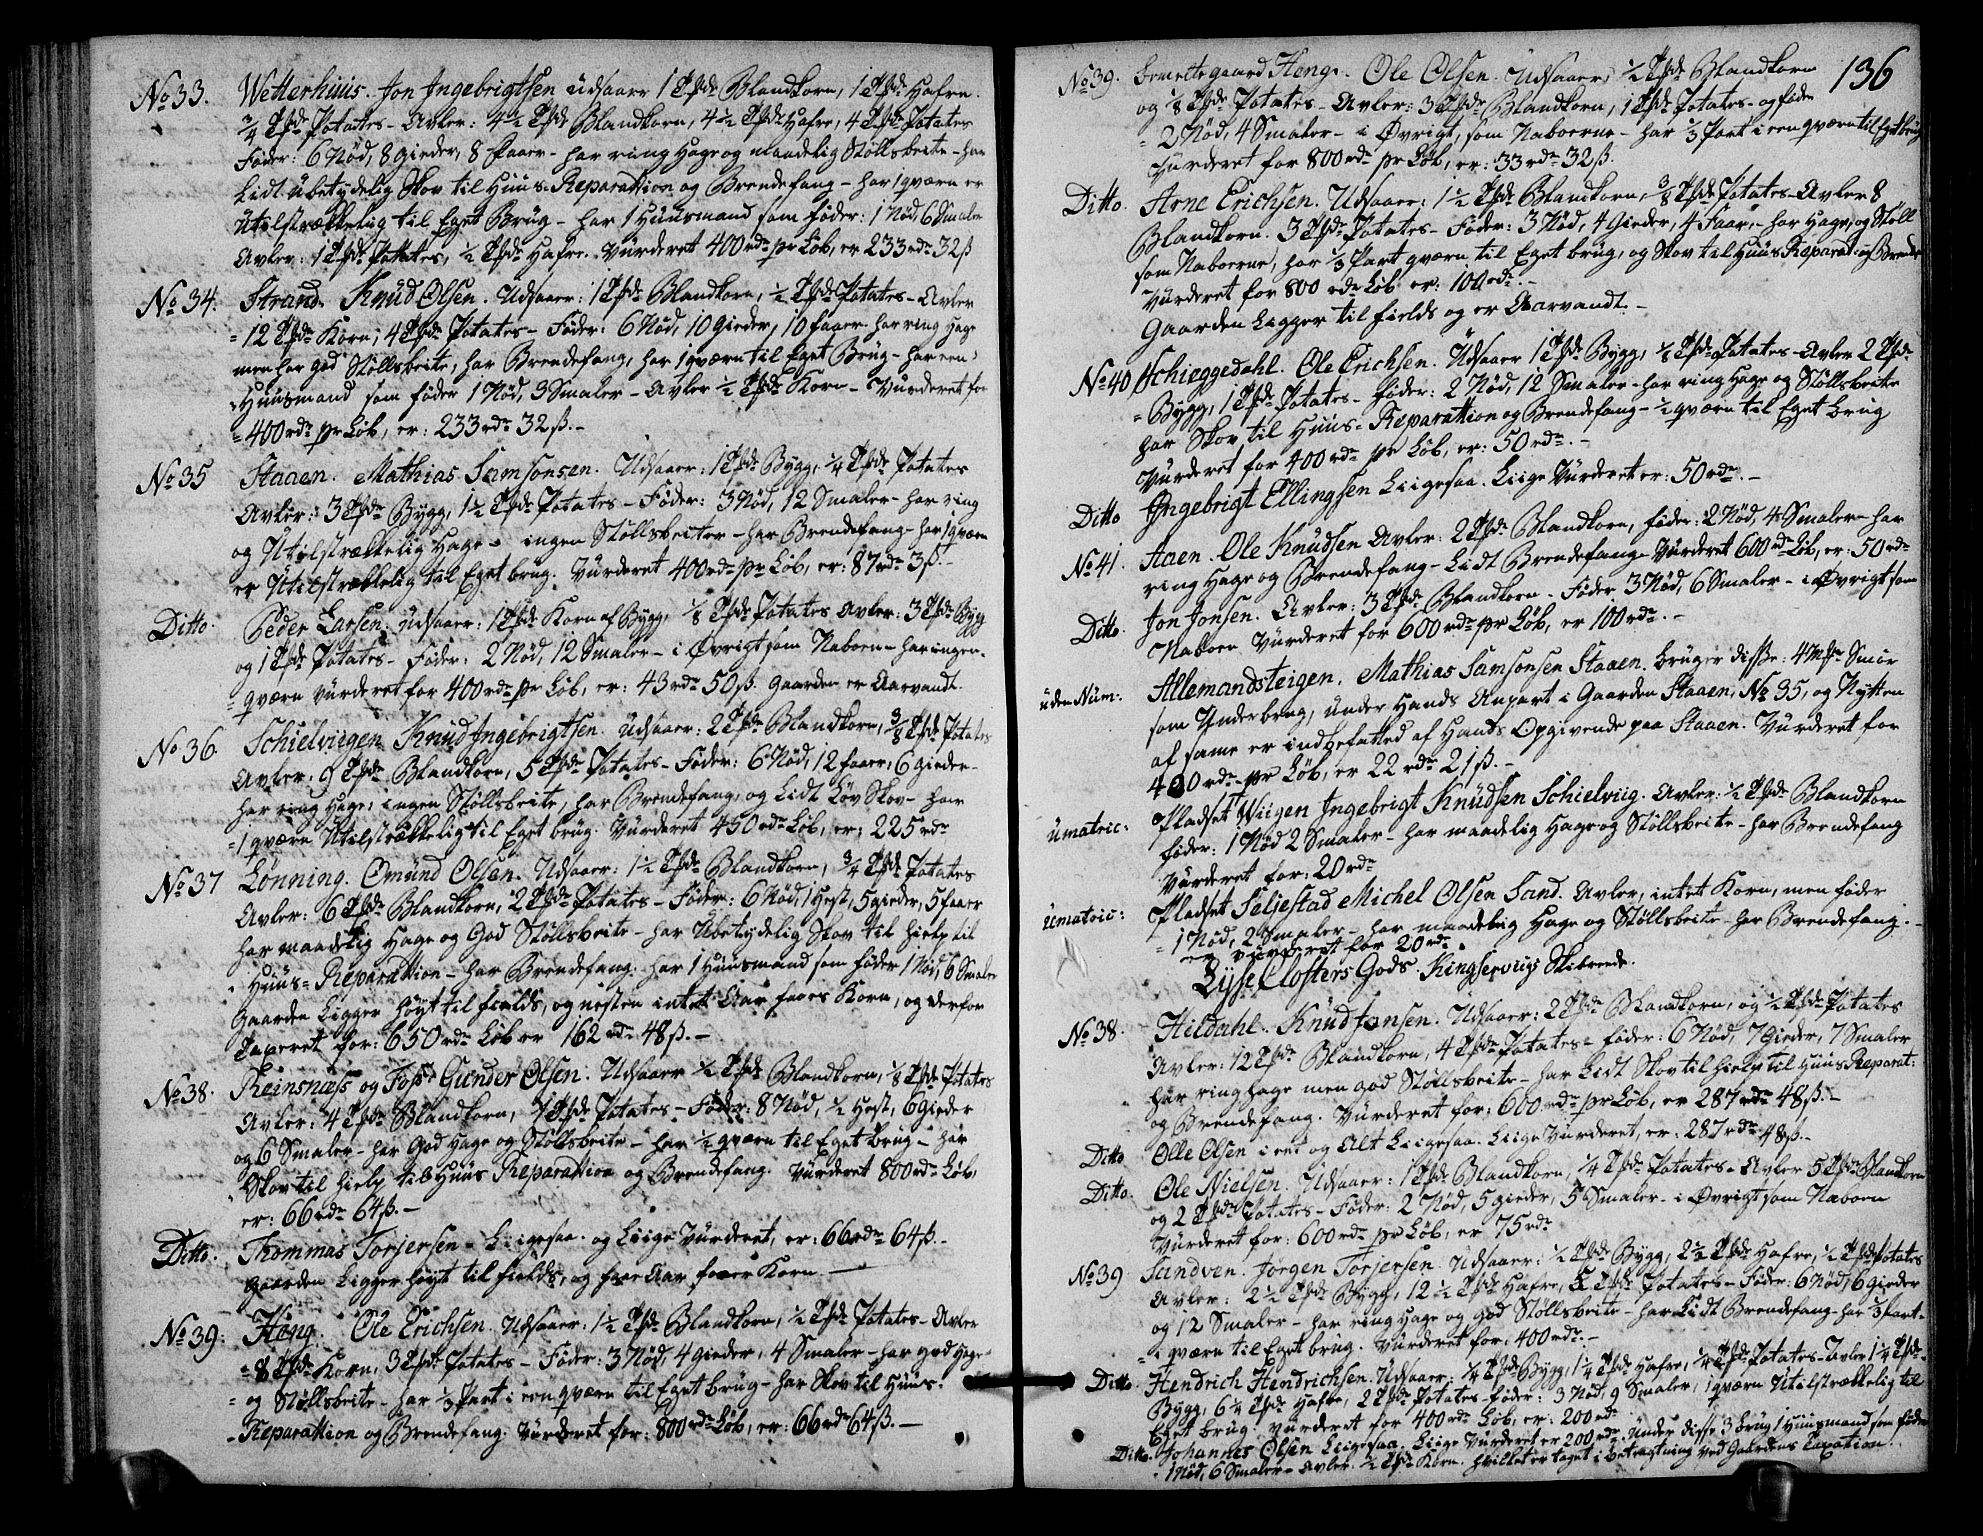 No 33. Wetterhuus. Jon Ingebrigtsen udsaaer 1 Tpde Blandkorn, 1 Tpde Hafre.
3/4 Tpde Potates - Avler: 4 1/2 Tpde Blandkorn, 4 1/2 Tpde Hafre, 4 Tpde Potates
Føder: 6 Nød, 8 gieder, 8 Faaer - har ring Hage og maadelig Støllsbeite - har
Lidt übetydelig Skov til Huus-Reparattion og Brendefang - har 1 qværn er
Utilstrækkelig til Eget Brug - har 1 Huusmand som føder: 1 Nød, 6 Smaler
Avler: 1 Tpde Potates, 1/2 Tpde Hafre. Vurderet 400 rdr pr Løb, er 233 rdr 32 ß
No 34. Strand. Knud Olsen. Udsaaer: 1 Tpde Blandkorn, 1/2 Tpde Potates - Avler
12 Tpde Korn, 4 Tpde Potates - Føder: 6 Nød, 10 Gieder, 10 faaer har ring Hage
men har god Støllsbeite, har Brendefang, har 1 qværn til Eget Brug - har een
Huusmand som føder 1 Nød, 3 Smaler - Avler 1/2 Tpde Korn - Vurderet for
400 rdr pr Løb, er: 233 rdr 32 ß. -
No 35 Staaen. Mathias Samsonsen. Udsaaer: 1 Tpde Bygg, 1/4 Tpde Potates
Avler: 3 Tpde Bygg, 1 1/2 Tpde Potates - Føder: 3 Nød, 12 Smaler - har ring
og Utilstrækkelig Hage - ingen Støllsbeiter - har Brendefang - har 1 qværn
er Utilstrækkelig til Eget brug. Vurderet 400 rdr pr Løb, er: 87 rdr 3 ß. -
Ditto. Peder Larsen. Udsaaer: 1 Tpde Korn af Bygg, 1/8 Tpde Potates Avler: 3 Tpde Bygg
og 1 Tpde Potates - Føder: 2 Nød, 12 Smaler - i Øvrigt som Naboen - har ingen
qværn vurderet for 400 rdr pr Løb, er: 43 rdr 50 ß. gaarden er Aarvandt.
No 36. Schielviigen Knud Ingebrigtsen. Udsaaer: 2 Tpde Blandkorn, 3/8 Tpde Potates
Avler: 9 Tpde Blandkorn, 5 Tpde Potates - Føder: 6 Nød, 12 faaer, 6 gieder -
har ring Hage, ingen Støllsbeite, har Brendefang, og Lidt Løv Skov - har
1 qværn Utilstrækkelig til Eget brug. Vurderet 450 rdr Løb, er: 225 rdr
No 37 Lønning. Omund Olsen. Udsaaer: 1 1/2 Tpde Blandkorn, 3/4 Tpde Potates
Avler: 6 Tpde Blandkorn, 2 Tpde Potates - Føder: 6 Nød, 1 Hest, 5 gieder, 5 faaer
har maadelig Hage og God Støllsbeite - har Übetydelig Skov til hielp til
Huus-Reparattion - har Brendefang. har 1 Huusmand som føder 1 Nød, 6 Smaler
Gaarden Ligger høyt til fields, og nesten intet Aar faaes Korn, og derfor
Taxeret for: 650 rdr Løb er 162 rdr 48 ß. -
No 38. Reinsnæss og Foss Gunder Olsen. Udsaaer 1/2 Tpde Blandkorn, 1/8 Tpde Potates
Avler: 4 Tpde Blandkorn, 1 Tpde Potates - Føder: 8 Nød, 1/2 Hest, 6 gieder
og 6 Smaler - har God Hage og Støllsbeite - har 1/2 qværn til Eget Brug - har
Skov til hielp til Huus Reparattion og Brendefang. Vurderet 800 rdr Løb
er: 66 rdr 64 ß. -
Ditto. Thommas Torjersen - Liigesaa. og Liige Vurderet, er: 66 rdr 64 ß. -
gaarden Ligger høyt til fields, og faae Aar faaer Korn. -
No 39. Häng. Ole Erichsen. Udsaaer: 1 1/2 Tpde Blandkorn, 1/2 Tpde Potates - Avler
8 Tpde Korn, 3 Tpde Potates - Føder: 3 Nød, 4 gieder, 4 Smaler - har god Hage
og Støllsbeite - har 1/3 Part i een qværn til Eget brug - har Skov til Huus.
Reparattion og Brendefang. Vurderet for: 800 rdr Løb, er: 66 rdr 64 ß. -
136
No 39. bemeltegaard Heng. Ole Olsen. Udsaaer, 1/2 Tpde Blandkorn
og 1/8 Tpde Potates - Avler: 3 Tpde Blandkorn, 1 Tpde Potates - og føder
2 Nød, 4 Smaler - i Øvrigt, som Naboerne - har 1/3 Part i een qværn til Eget brug
Vurderet for 800 rdr pr Løb, er: 33 rdr 32 ß.
Ditto. Arne Erichsen. Udsaaer: 1 1/2 Tpde Blandkorn, 3/8 Tpde Potates - Avler 8
Blandkorn. 3 Tpde Potates - Føder: 3 Nød, 4 Gieder, 4 Faar, - har Hage, og Støll
som Naboerne, har 1/3 Part qværn til Eget brug, og Skov til Huus Reparat: og Brende
Vurderet for 800 rdr Løb er: 100 rdr. -
Gaarden Ligger til fields og er Aarvandt. -
No 40 Schieggedahl. Ole Erichsen. Udsaaer 1 Tpde Bygg, 1/8 Tpde Potates - Avler 2 Tpde
Bygg, 1 Tpde Potates - føder: 2 Nød, 12 Smaler - har ring Hage og Støllsbeite
har Skov til Huus-Reparattion og Brendefang - 1/2 qværn til Eget brug
Vurderet for 400 rdr pr Løb, er: 50 rdr. -
Ditto Ingebrigt Ellingsen Liigesaa. Liige Vurderet er: 50 rdr. -
No 41. Aaen. Ole Knudsen Avler: 2 Tpde Blandkorn, føder: 2 Nød, 4 Smaler - har
ring Hage og Brendefang - Lidt Brendefang - Vurderet 600 rdr Løb, er: 50 rdr
Ditto. Jon Jonsen. Avler: 3 Tpde Blandkorn. Føder 3 Nød, 6 Smaler - i Øvrigt som
Naboen Vurderet for 600 rdr pr Løb, er 100 rdr. -
uden Num: Allemandsteigen. Mathias Samsonsen Staaen. bruger disse: 4 Mpr Smør
som Underbrug, under Hands Anpart i Gaarden Staaen, No 35, og Nytten
af samme er indbefatted af Hands Opgivende paa Staaen. Vurderet for
400 rdr pr Løb, er 22 rdr 21 ß. -
umatric: Pladset Wiigen Ingebrigt Knudsen Schielviig. Avler: 1/2 Tpde Blandkorn
føder: 1 Nød 2 Smaler - har maadelig Hage og Støllsbeite - har Brendefang
Vurderet for: 20 rdr
umatric: Pladset Seljestad Michel Olsen Sand. Avler, intet Korn, men føder
1 Nød, 2 Smaler - har maadelig Hage og Støllsbeite - har Brendefang.
er vurderet for 20 rdr
Lysse Closters Gods. Kingservigs Skibrede.
No 38. Hildahl. Knud Jansen. Udsaaer: 2 Tpde Blandkorn, og 1/2 Tpde Potates
Avler: 12 Tpde Blandkorn, 4 Tpde Potates - føder: 6 Nød, 7 Gieder, 7 Smaler
har ring hage men god Støllsbeite - har Lidt Skov til hielp til Huus Reparat:
og Brendefang. Vurderet for: 600 rdr pr Løb, er 287 rdr 48 ß. -
Ditto Olle Olsen i eet og Alt Liigesaa. Liige Vurderet, er: 287 rdr 48 ß. -
Ditto. Ole Nielsen. Udsaaer: 1 Tpde Blandkorn, 1/4 Tpde Potates - Avler 5 Tpde Blandkorn
og 2 Tpde Potates - Føder: 2 Nød, 5 gieder, 5 Smaler - i Øvrigt som Naboen
Vurderet for: 600 rdr pr Løb, er 75 rdr
No 39 Sandven. Jørgen Torjersen. Udsaaer: 1/2 Tpde Bygg, 2 1/2 Tpde Hafre, 1/2 Tpde Potates
Avler: 2 1/2 Tpde Bygg, 12 1/2 Tpde Hafre, 5 Tpde Potates - Føder: 6 Nød, 6 gieder
og 12 Smaler - har ring Hage og god Støllsbeite - har Lidt Brendefang - har 1/3 part
i qværn til Eget brug. Vurderet for: 400 rdr. -
Ditto. Hendrich Hendrichsen. Udsaaer: 1/4 Tpde Bygg, 1 1/4 Tpde Hafre, 1/4 Tpde Potates - Avler 1 1/4 Tpde
Bygg, 6 1/4 Tpde Hafre, 2 Tpde Potates føder: 3 Nød, 9 Smaler, 1 qværn Utilstrækkelig til
Eget brug. vurderet for 400 rdr Løb, er: 200 rdr.
Ditto. Johannes Olsen Liigesaa. Liige Vurderet er 200 rdr. Under disse 3 brug 1 Huusmand som føder
1 Nød, 6 Smaler - Avler. 1/2 Tpde Korn. hvilket er taget i betragtning ved Gaardens Taxation.